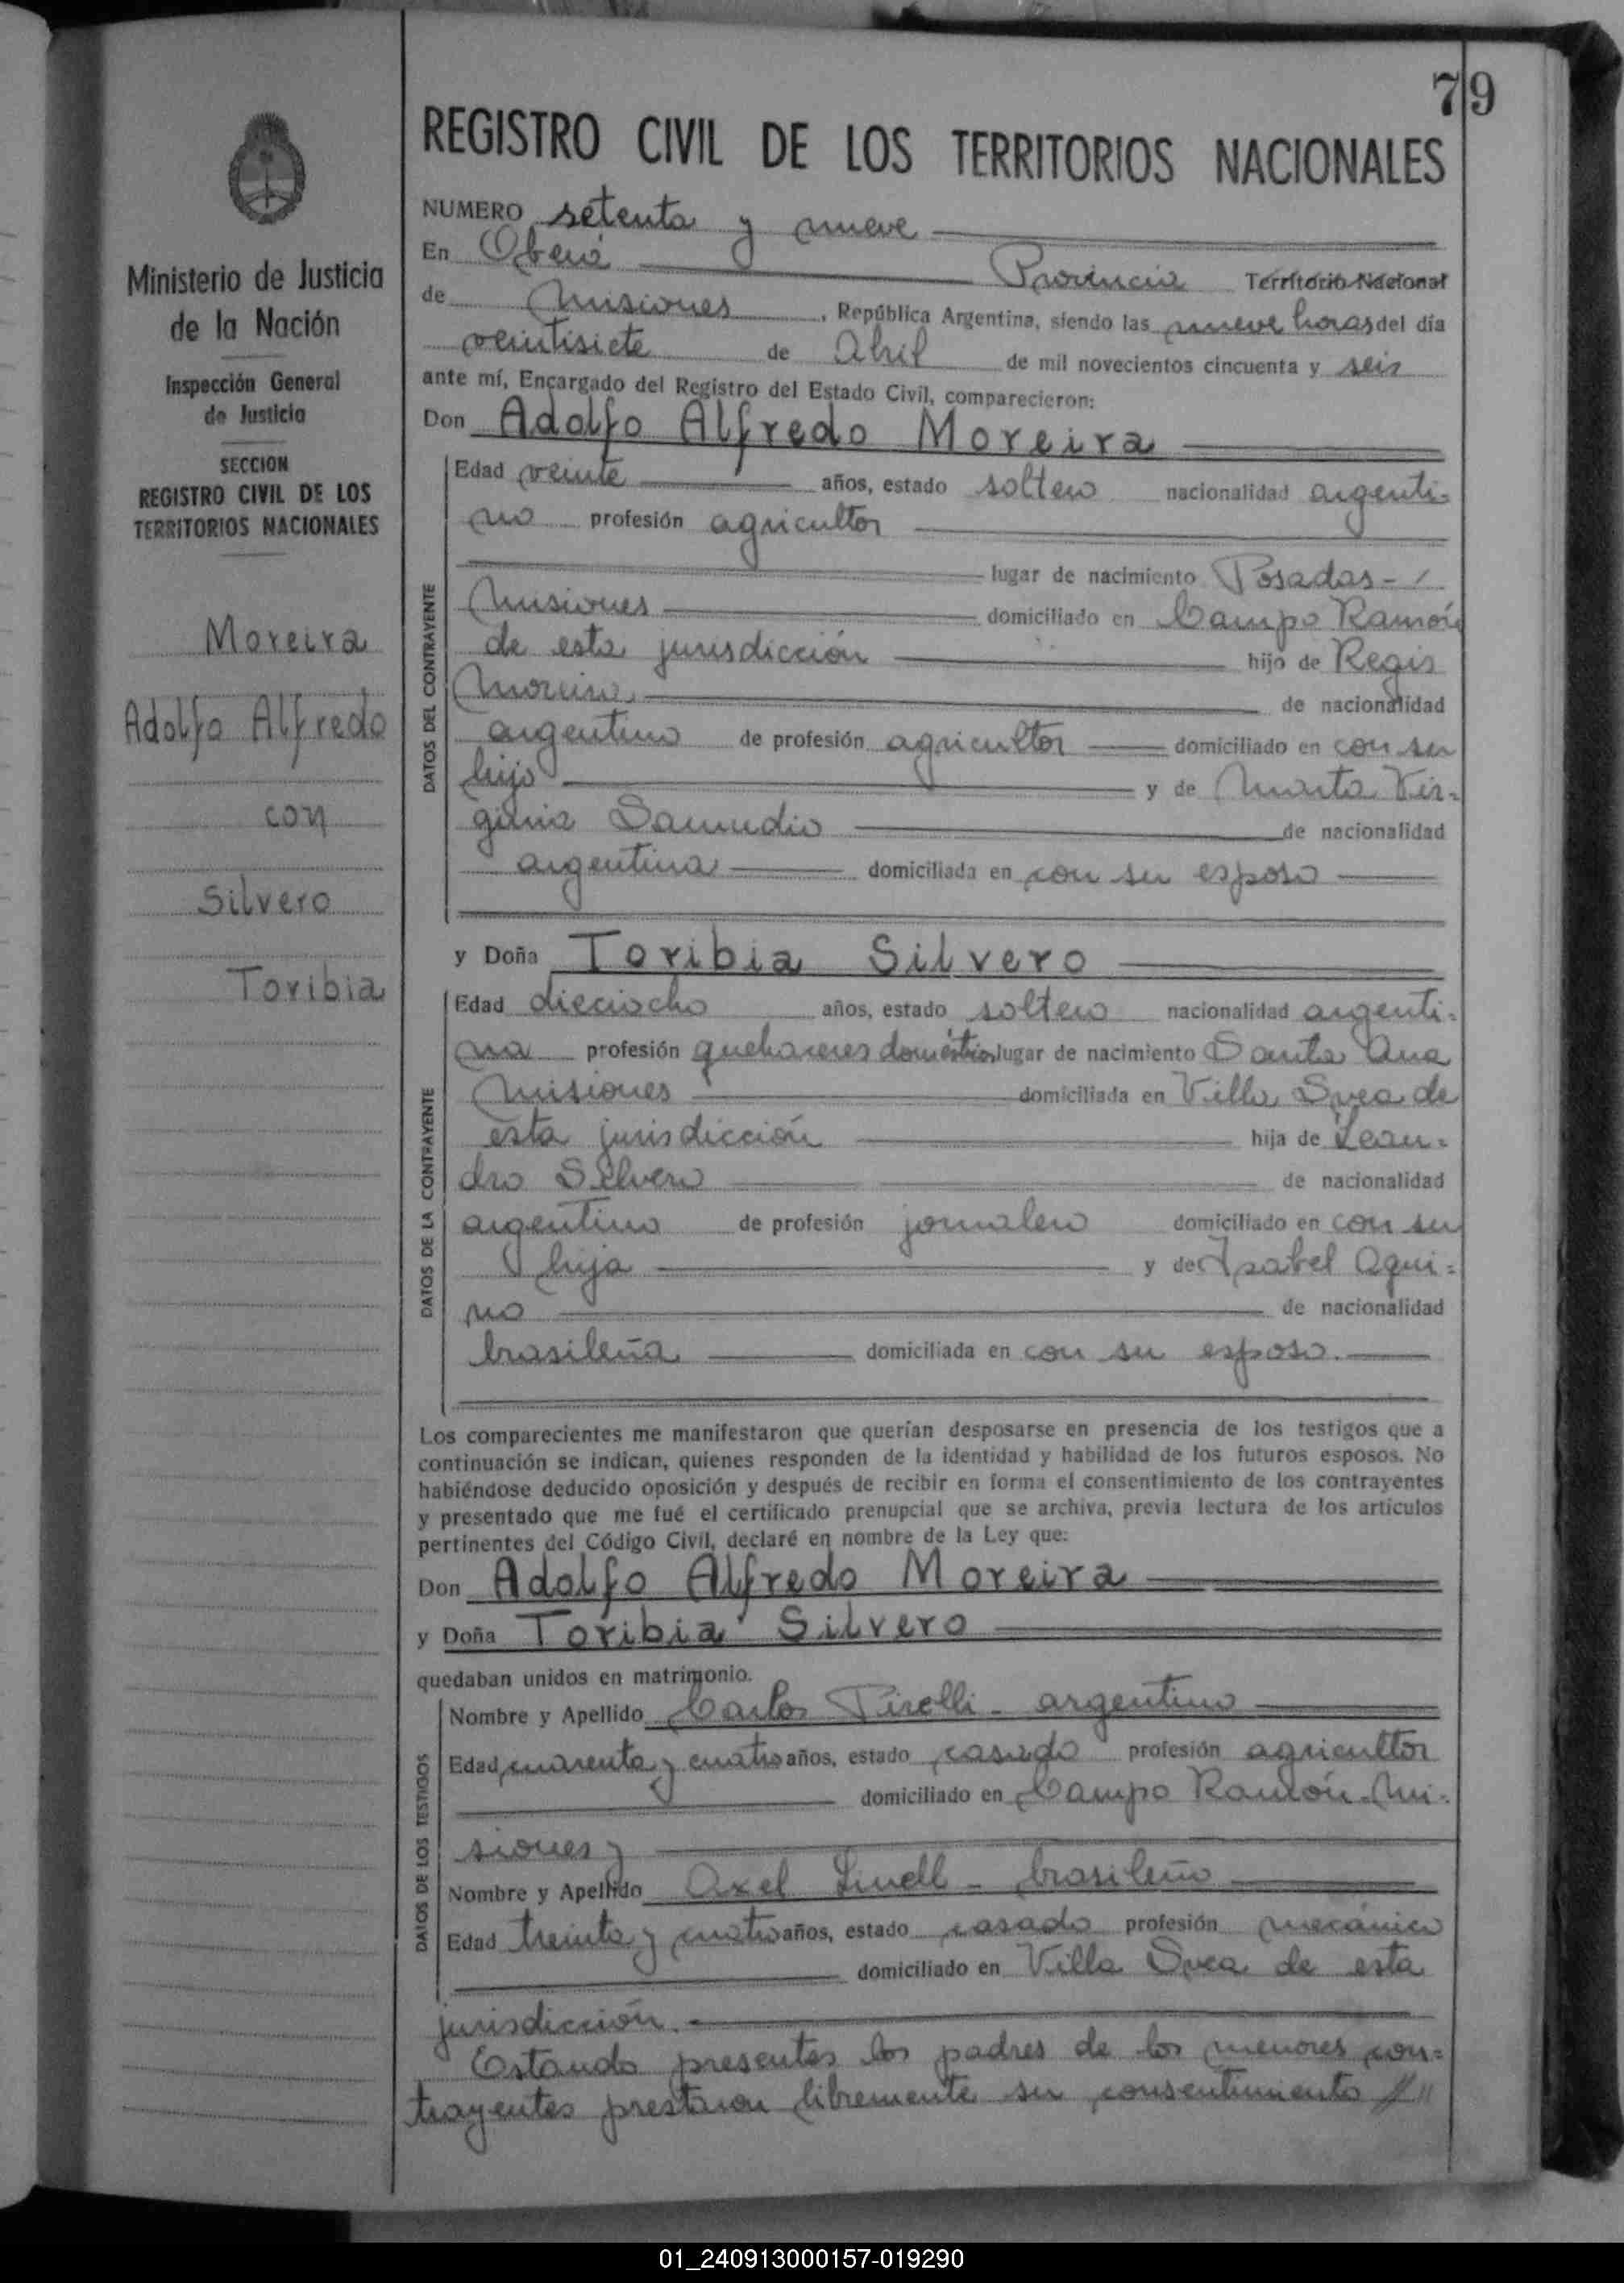 79
REGISTRO CIVIL DE LOS TERRITORIOS NACIONALES
Ministerio de Justicia
de la Nación
Inspección General
de Justicia
SECCION
REGISTRO CIVIL DE LOS
TERRITORIOS NACIONALES
Moreira
Adolfo Alfredo
con
Silvero
Toribia
NUMERO setenta y nueve
En Oberá Provincia Territorio Nacional
de Misiones, República Argentina, siendo las nueve horas del día
veintisiete de Abril de mil novecientos cincuenta y seis
ante mí, Encargado del Registro del Estado Civil, comparecieron:
Don Adolfo Alfredo Moreira
DATOS DEL CONTRAYENTE
Edad veinte años, estado soltero nacionalidad argenti-
no profesión agricultor
lugar de nacimiento Posadas-
Misiones domiciliado en Campo Ramón
de esta jurisdicción hijo de Regis
Moreira de nacionalidad
argentino de profesión agricultor domiciliado en con su
hijo y de Marta Vir-
ginia Samudio de nacionalidad
argentina domiciliada en con su esposo
y Doña Toribia Silvero
DATOS DE LA CONTRAYENTE
Edad dieciocho años, estado soltero nacionalidad argenti-
na profesión quehaceres domésticos lugar de nacimiento Santa Ana
Misiones domiciliada en Villa Svea de
esta jurisdicción hija de Lean-
dro Silvero de nacionalidad
argentino de profesión jornalero domiciliado en con su
hija y de Isabel Aqui-
no de nacionalidad
brasileña domiciliada en con su esposo.
Los comparecientes me manifestaron que querían desposarse en presencia de los testigos que a
continuación se indican, quienes responden de la identidad y habilidad de los futuros esposos. No
habiéndose deducido oposición y después de recibir en forma el consentimiento de los contrayentes
y presentado que me fué el certificado prenupcial que se archiva, previa lectura de los artículos
pertinentes del Código Civil, declaré en nombre de la Ley que:
Don Adolfo Alfredo Moreira
y Doña Toribia Silvero
quedaban unidos en matrimonio.
DATOS DE LOS TESTIGOS
Nombre y Apellido Carlos Pirelli - argentino
Edad cuarenta y cuatro años, estado casado profesión agricultor
domiciliado en Campo Ramón-Mi-
siones y
Nombre y Apellido Axel - brasileño
Edad treinta y cuatro años, estado casado profesión mecánico
domiciliado en Villa Svea de esta
jurisdicción.-
Estando presentes los padres de los menores con-
trayentes prestaron libremente su consentimiento //"
01_240913000157-019290